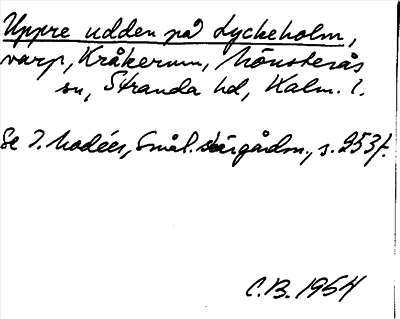 Uppre udden på Lyckeholm,
varp, Kråkerum, Mönsterås
sn, Stranda hd, Kalm. l.
Se I. Modéer, Smål. skärgårdsn., s. 253f.
C.B. 1954